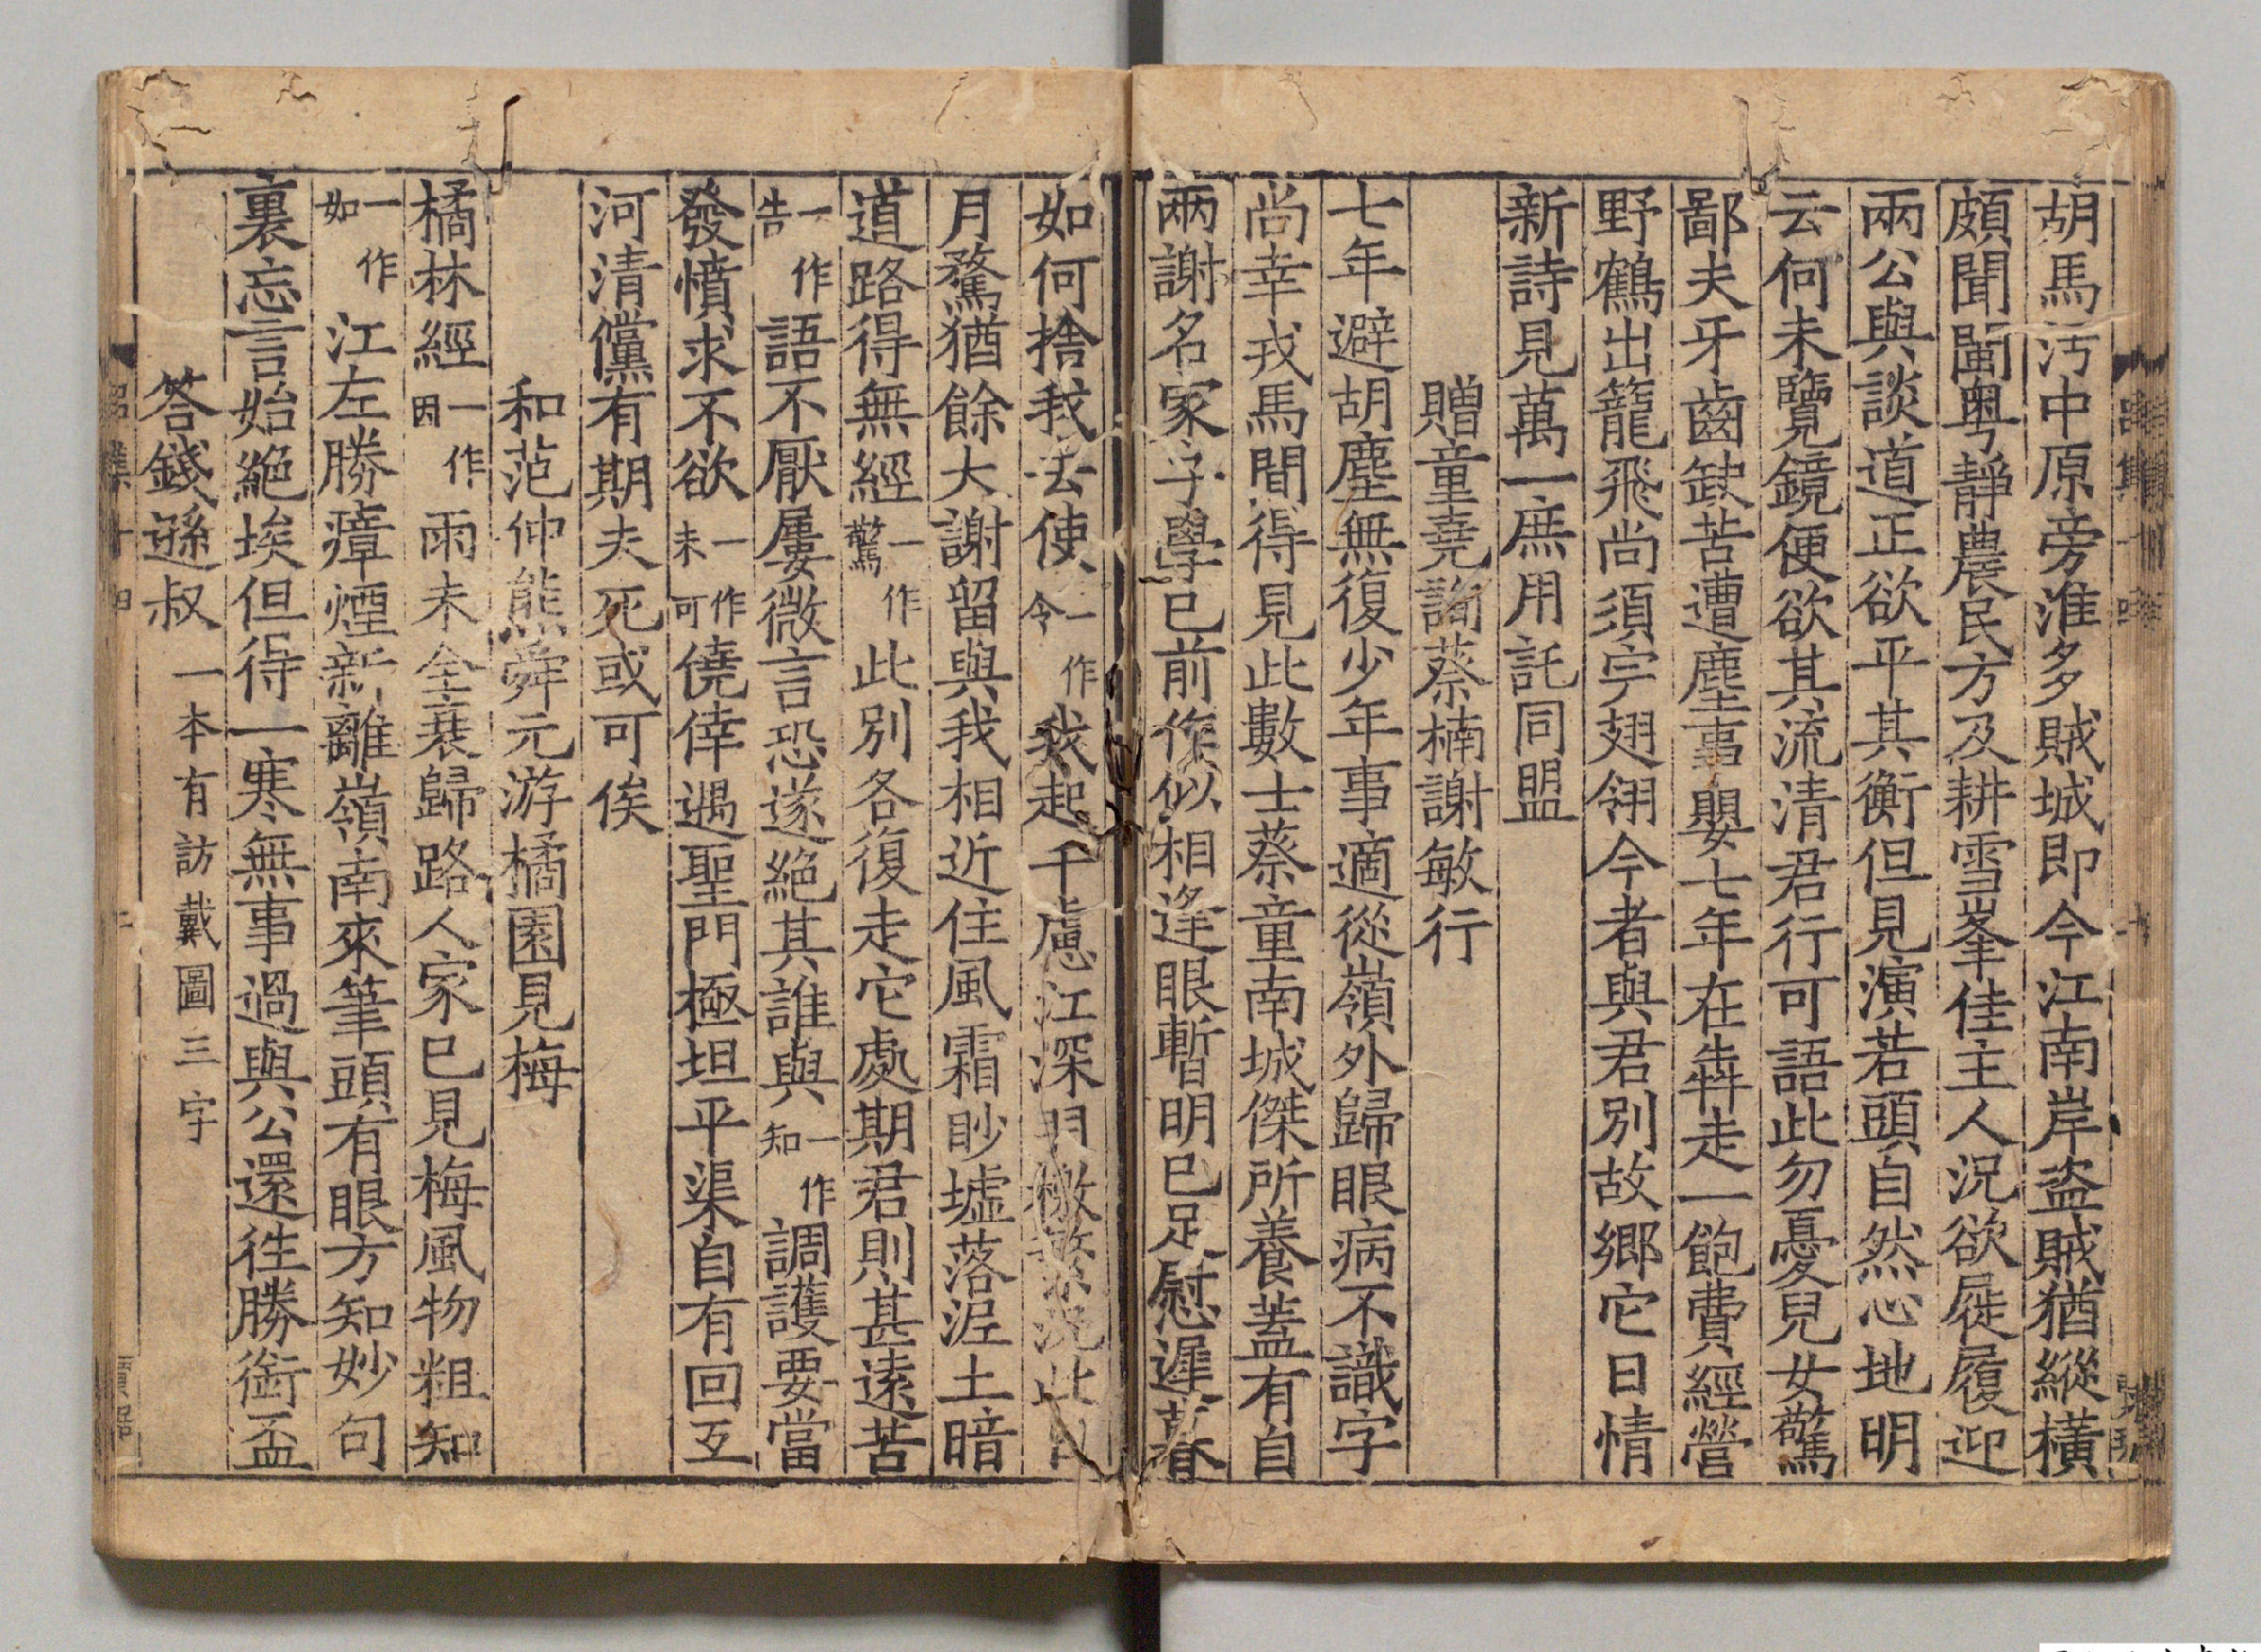 胡馬汚中原旁淮多賊城即今江南岸盗賊猶縱橫
頗聞閩粤靜農民方及耕雪峯佳主人況欲屣履迎
兩公與談道正欲平其衡但見演若頭自然心地明
云何未覽鏡便欲其流清君行可語此勿憂兒女驚
鄙夫牙齒缺苦遭塵事嬰七年在犇走一飽費經營
野鶴出籠飛尚須宇翅翎今者與君別故鄉它日情
新詩見萬一庶用託同盟
贈童堯詢蔡楠謝敏行
七年避胡塵無復少年事適從嶺外歸眼病不識字
尚幸戎馬間得見此數士蔡童南城傑所養蓋有自
兩謝名家子學已前作似相逢眼暫明已足慰遲暮
如何捨我去使一作令我起千慮江深羽檄繁況此日
月騖猶餘大謝留與我相近住風霜眇墟落泥土暗
道路得無經一作驚此別各復走它處期君則甚遠苦
一作告語不厭屢微言恐遂絕其誰與一作知調護要當
發憤求不欲一作未可僥倖遇聖門極坦平渠自有回互
河清儻有期夫死或可俟
和范仲熊舜元游橘園見梅
橘林經一作因雨未全衰歸路人家已見梅風物粗知
一作如江左勝瘴煙新離嶺南來筆頭有眼方知妙句
裏忘言始絕埃但得一寒無事過與公還往勝銜盃
答錢遜叔一本有訪戴圖三字